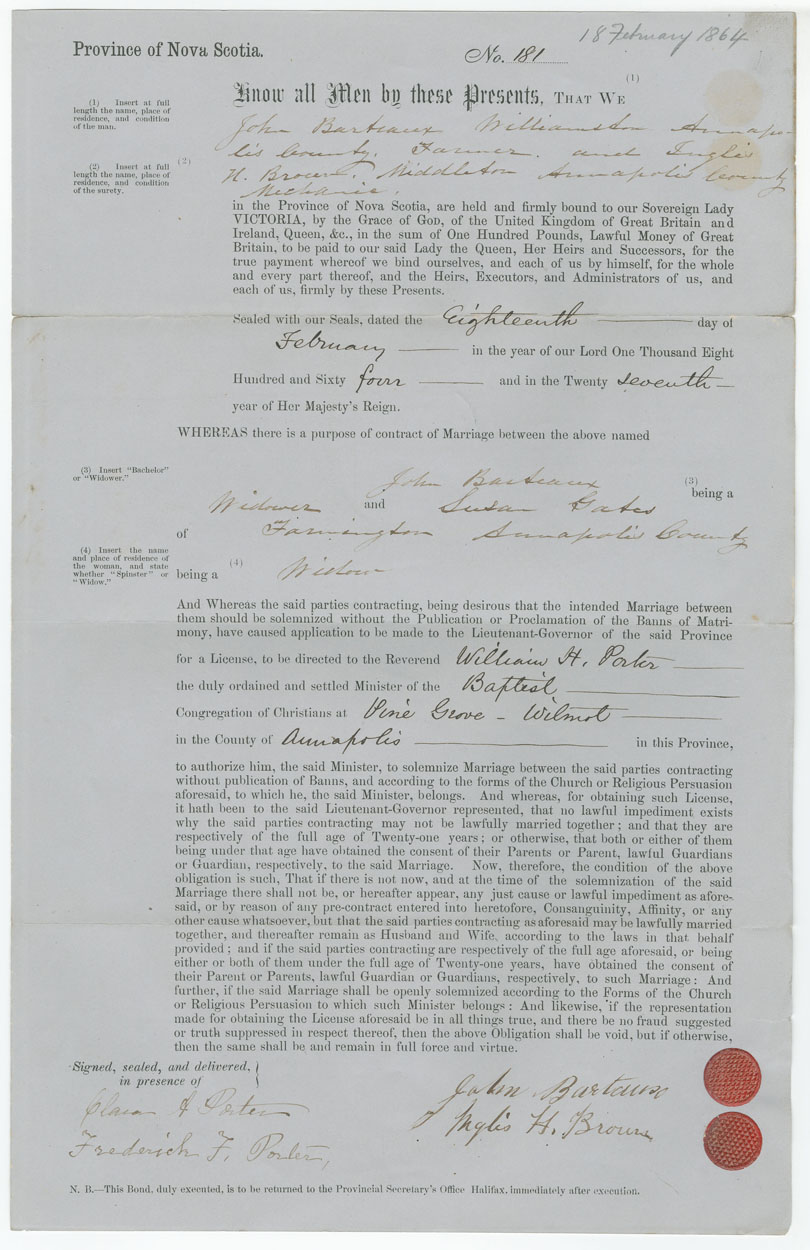 18 February 1864
Province of Nova Scotia.
No. 181
(1)
Know all Men by these Presents, THAT WE
(1) Insert at full
length the name, place of
residence, and condition
of the man.
John Barteaux Williamston Annapo-
lis County. Farmer. and Inglis
(2) Insert at full
length the name, place of
residence, and condition
of the surety.
(2)
H. Brown. Middleton Annapolis County
Mechanic.
in the Province of Nova Scotia, are held and firmly bound to our Sovereign Lady
VICTORIA, by the Grace of God, of the United Kingdom of Great Britain and
Ireland, Queen, &c., in the sum of One Hundred Pounds, Lawful Money of Great
Britain, to be paid to our said Lady the Queen, Her Heirs and Successors, for the
true payment whereof we bind ourselves, and each of us by himself, for the whole
and every part thereof, and the Heirs, Executors, and Administrators of us, and
each of us, firmly by these Presents.
Sealed with our Seals, dated the Eighteenth day of
February in the year of our Lord One Thousand Eight
Hundred and Sixty four and in the Twenty seventh
year of Her Majesty's Reign.
WHEREAS there is a purpose of contract of Marriage between the above named
(3) Insert "Bachelor"
or "Widower."
John Barteaux (3) being a
Widower and Susan Gates
of Farmington Annapolis County
(4) Insert the name
and place of residence of
the woman, and state
whether "Spinster" or
"Widow."
being a (4) Widow
And Whereas the said parties contracting, being desirous that the intended Marriage between
them should be solemnized without the Publication or Proclamation of the Banns of Matri-
mony, have caused application to be made to the Lieutenant-Governor of the said Province
for a License, to be directed to the Reverend William H. Porter
the duly ordained and settled Minister of the Baptist
Congregation of Christians at Pine Grove - Wilmot
in the County of Annapolis in this Province,
to authorize him, the said Minister, to solemnize Marriage between the said parties contracting
without publication of Banns, and according to the forms of the Church or Religious Persuasion
aforesaid, to which he, the said Minister, belongs. And whereas, for obtaining such License,
it hath been to the said Lieutenant-Governor represented, that no lawful impediment exists
why the said parties contracting may not be lawfully married together; and that they are
respectively of the full age of Twenty-one years; or otherwise, that both or either of them
being under that age have obtained the consent of their Parents or Parent, lawful Guardians
or Guardian, respectively, to the said Marriage. Now, therefore, the condition of the above
obligation is such, That if there is not now, and at the time of the solemnization of the said
Marriage there shall not be, or hereafter appear, any just cause or lawful impediment as afore-
said, or by reason of any pre-contract entered into heretofore, Consanguinity, Affinity, or any
other cause whatsoever, but that the said parties contracting as aforesaid may be lawfully married
together, and thereafter remain as Husband and Wife, according to the laws in that behalf
provided; and if the said parties contracting are respectively of the full age aforesaid, or being
either or both of them under the full age of Twenty-one years, have obtained the consent of
their Parent or Parents, lawful Guardian or Guardians, respectively, to such Marriage: And
further, if the said Marriage shall be openly solemnized according to the Forms of the Church
or Religious Persuasion to which such Minister belongs: And likewise, if the representation
made for obtaining the License aforesaid be in all things true, and there be no fraud suggested
or truth suppressed in respect thereof, then the above Obligation shall be void, but if otherwise,
then the same shall be and remain in full force and virtue.
Signed, sealed, and delivered,
in presence of
John Bartaux
Clara A Porter
Inglis H. Brown
Frederick F. Porter,
N. B.—This Bond, duly executed, is to be returned to the Provincial Secretary's Office Halifax, immediately after execution.